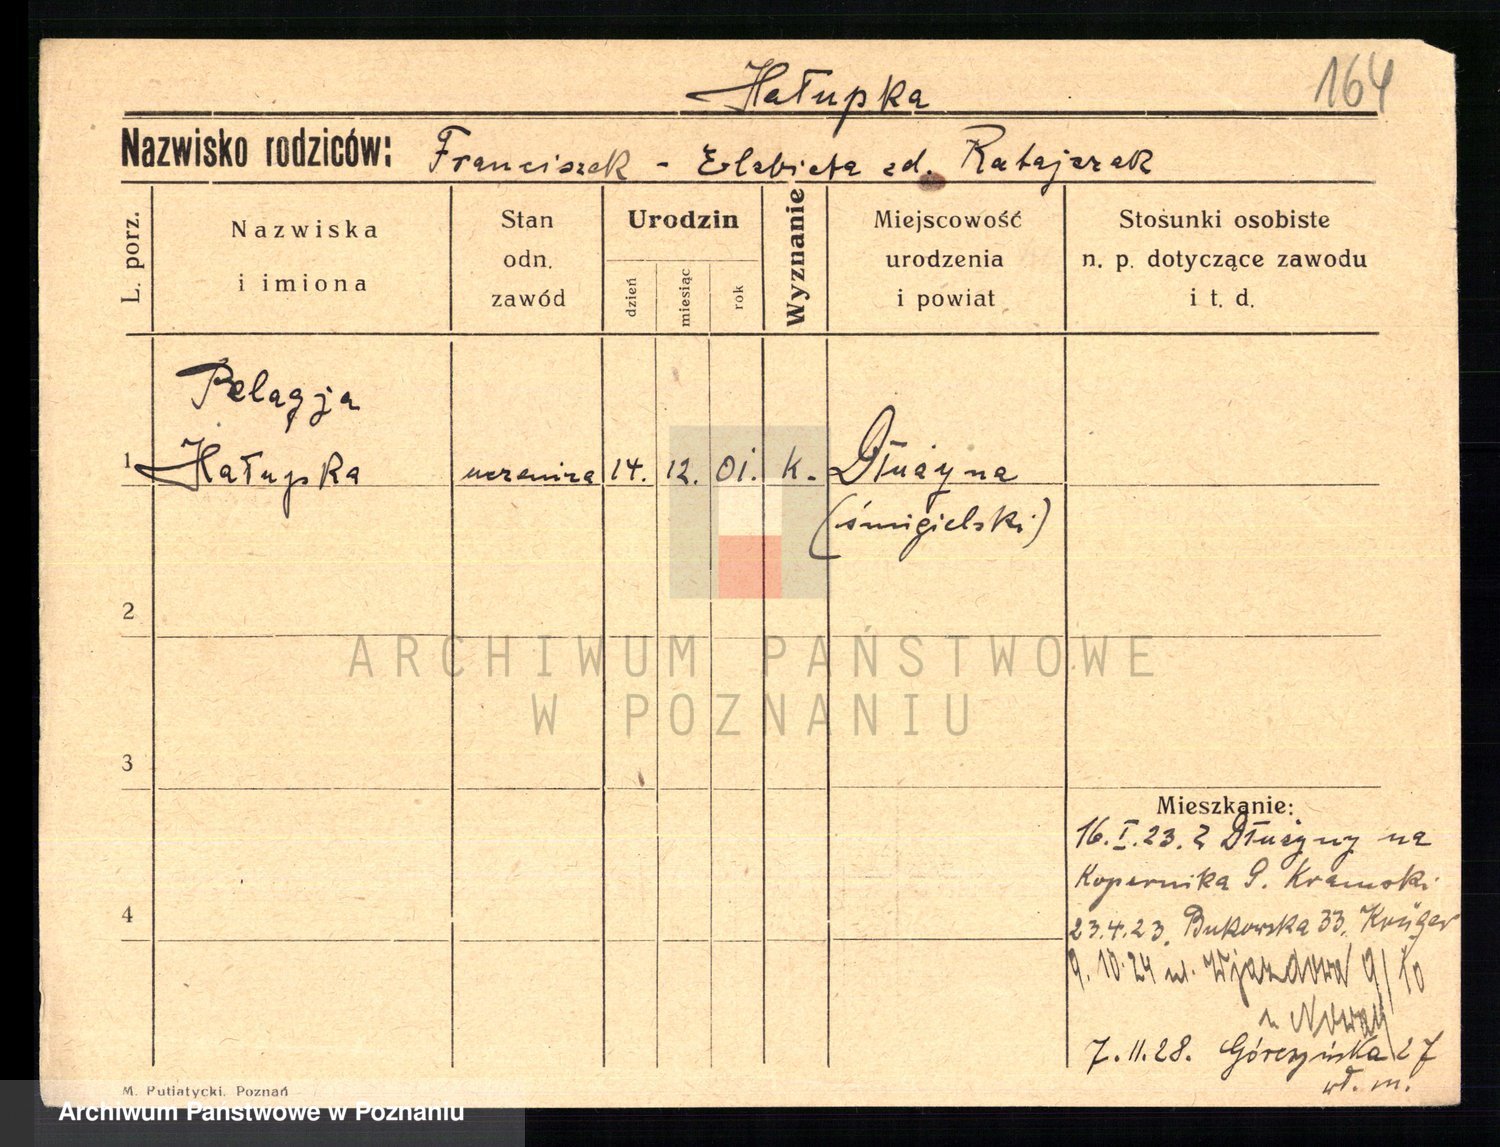 164
Hałupka
Nazwisko rodziców: Franciszek - Elżbieta zd. Ratajczak
L. porz.
Nazwiska
i imiona
Stan
odn.
zawód
Urodzin
dzień
miesiąc
rok
Wyznanie
Miejscowość
urodzenia
i powiat
Stosunki osobiste
n. p. dotyczące zawodu
i t. d.
Pelagja
1 Hałupka uczenica 14. 12. 01. k. Dłużyna
(śmigielski)
2
3
4
Mieszkanie:
16.I.23. z Dłużyny na
Kopernika 9. Kramski
23.4.23. Bukowska 33. Krüger
9.10.24 ul. Wjazdowa 9/10
u Nowak
7.11.28. Górczyńska 27
wł. m.
M. Putiatycki, Poznań
ARCHIWUM PAŃSTWOWE
W POZNANIU
Archiwum Państwowe w Poznaniu